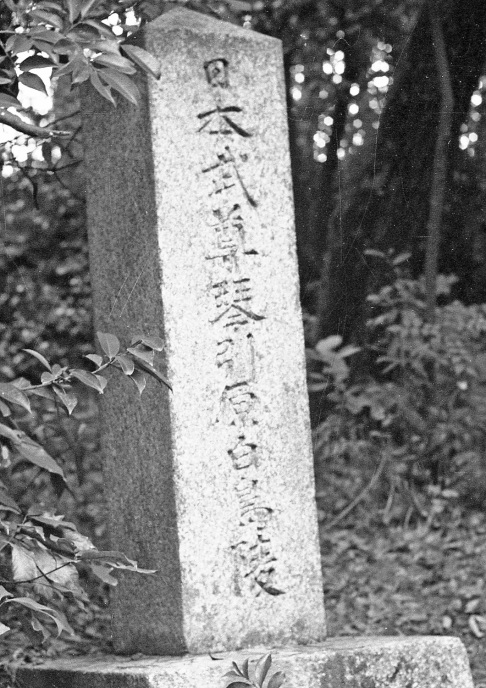 日本武尊琴引原白鳥陵